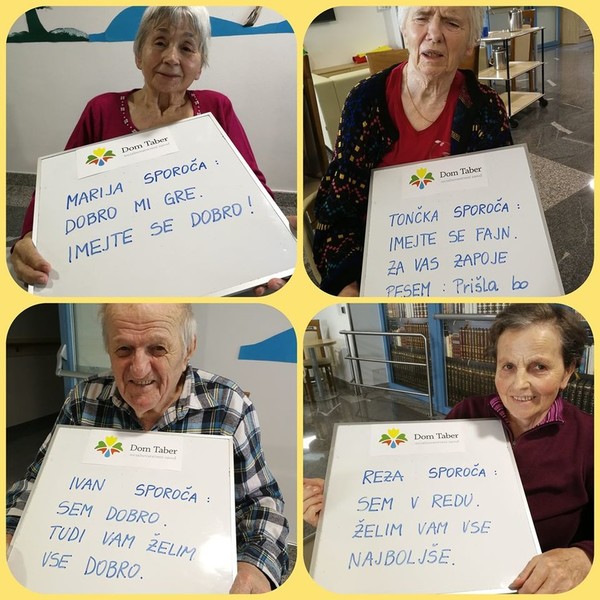 Dom Taber
MARIJA SPOROČA :
DOBRO MI GRE.
IMEJTE SE DOBRO!
Dom Taber
TONČKA SPOROČA :
IMEJTE SE FAJN.
ZA VAS ZAPOJE
PESEM : Prišla bo
Dom Taber
IVAN SPOROČA :
SEM DOBRO.
TUDI VAM ŽELIM
VSE DOBRO.
Dom Taber
REZA SPOROČA :
SEM V REDU.
ŽELIM VAM VSE
NAJBOLJŠE.